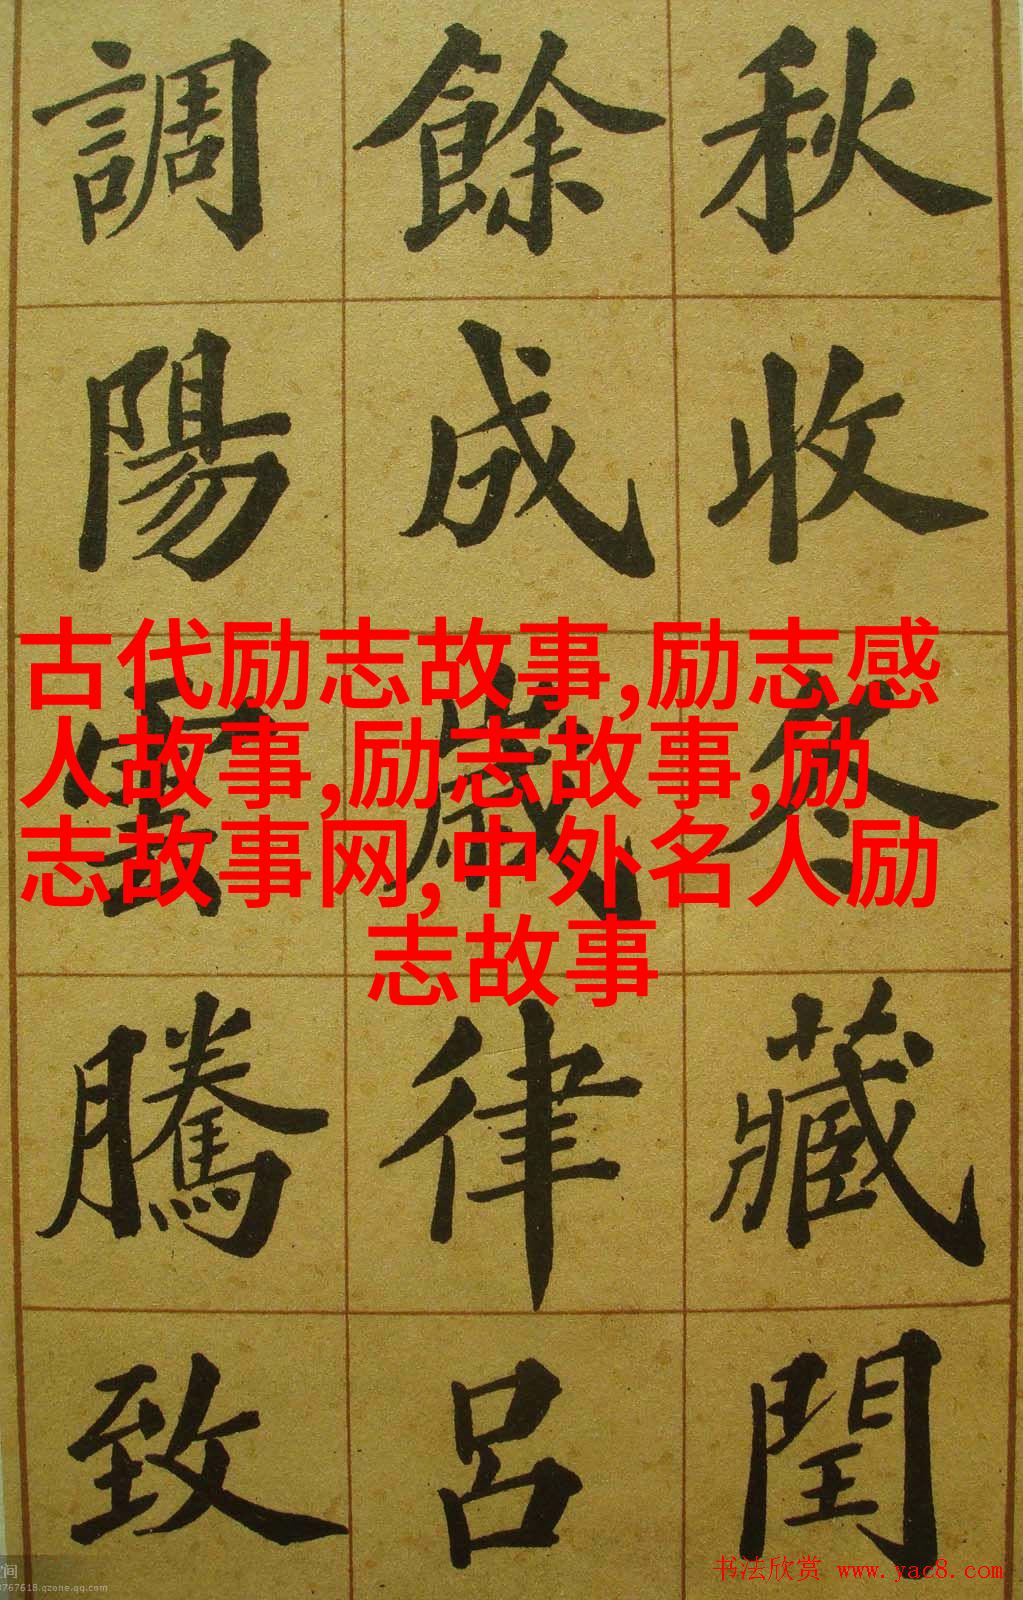 秋收冬藏閏
餘成歲律呂
調陽雲騰致
古代励志故事,励志感
人故事,励志故事,励
志故事网,中外名人励
志故事
书法欣赏 www.yac8.com
空间
3767618.qzone.qq.com